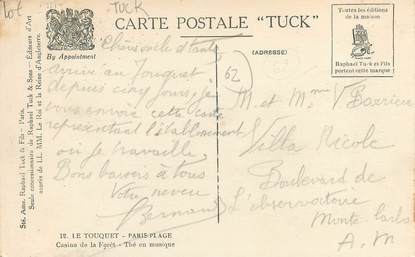 lot
TUCK
CARTE POSTALE "TUCK"
(ADRESSE)
By Appointment
Toutes les éditions
de la maison
Raphael Tuck et Fils
portent cette marque
Sté. Ame. Raphael Tuck & Fils - Paris.
Seule concessionnaire de Raphael Tuck & Sons - Éditeurs d'Art
auprès de LL. MM. Le Roi et la Reine d'Angleterre.
Chers oncle et tante
Arrivé au Touquet
depuis cinq jours, je
vous envoie cette carte
représentant l'établissement
où je travaille
Bons baisers à tous
Votre neveu
Bernard
62
M. et Mme Barrière
Villa Nicole
Boulevard de
L'observatoire
Monte-Carlo
A. M
12. LE TOUQUET - PARIS-PLAGE
Casino de la Forêt - Thé en musique